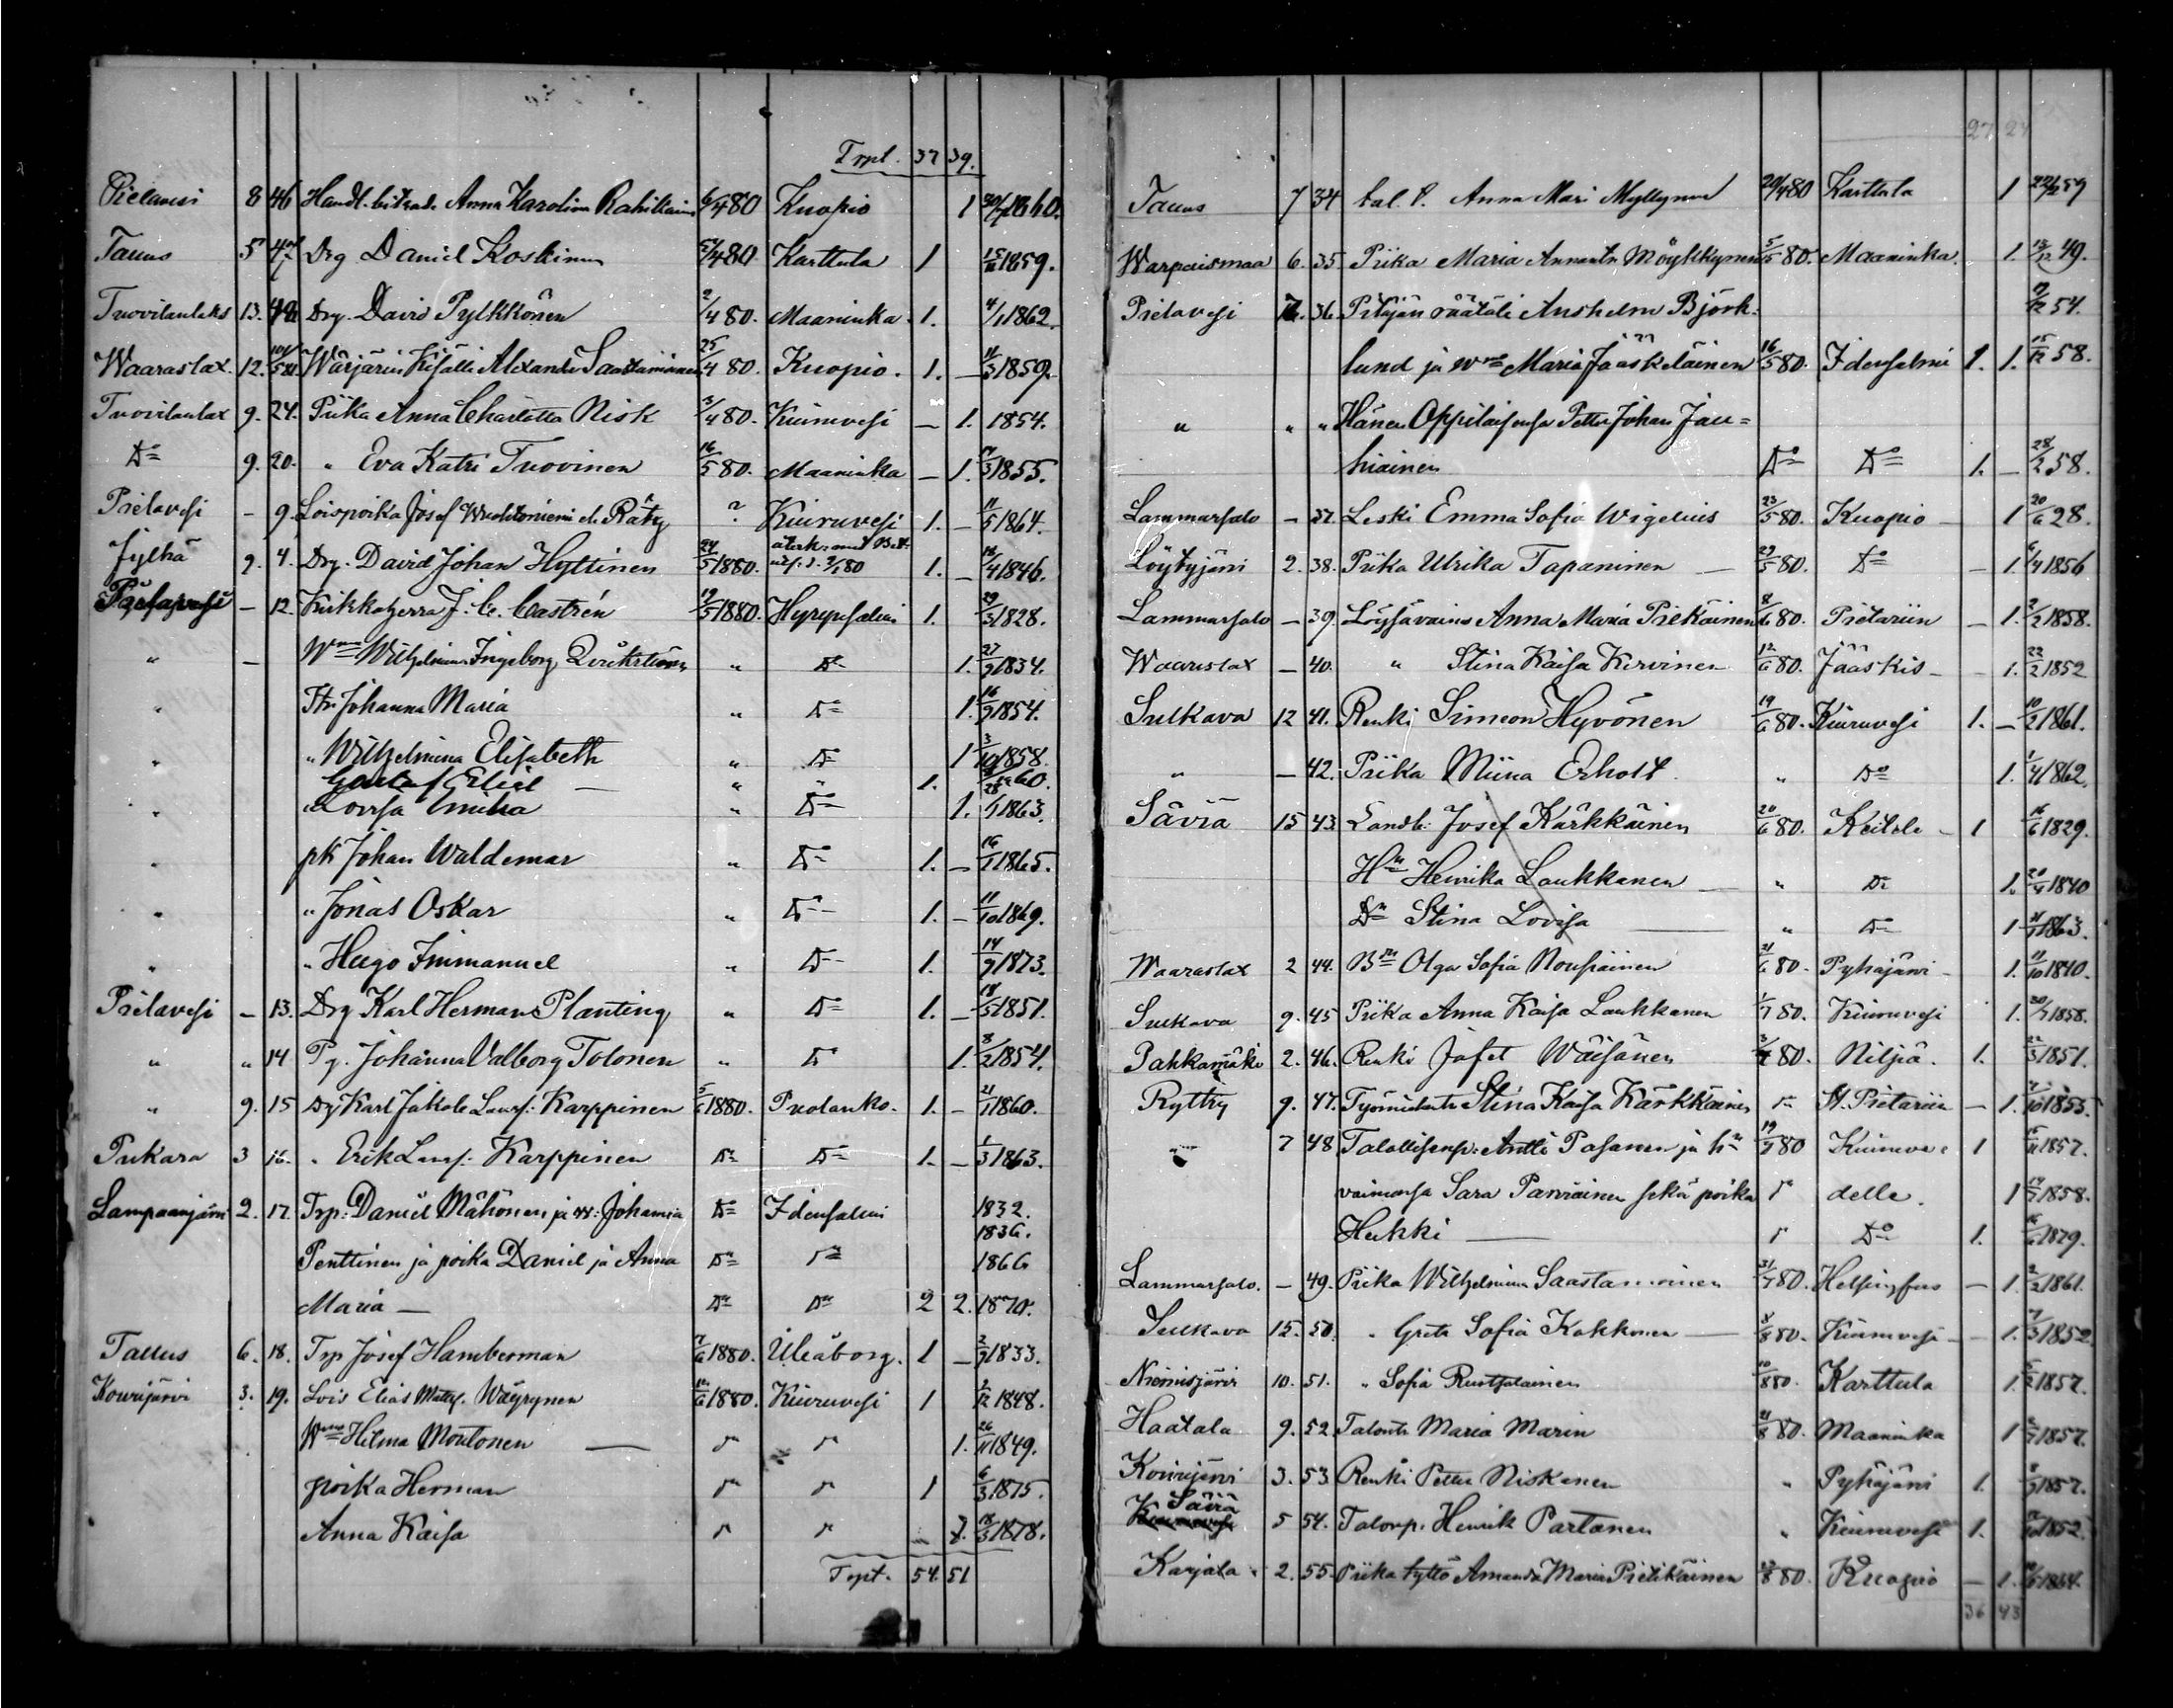 Trpt. 37 39.
Pielavesi 8 46 Handl. biträd. Anna Karolina Rahikain 6/4 80 Kuopio 1 1860.
Tauus 5 Drg Daniel Koskinen 480 Karttula 1 1859.
Tuovilanlaks 13. Drg. David Pylkkönen 2/4 80. Maaninka. 1. 4/1 1862.
Waaraslax. 12. Wärjärin Kisälli Alexander Saastamoinen 25/4 80. Kuopio. 1. — 11/3 1859.
Tuovilanlax 9. 24. Piika Anna Charlotta Nisk 3/4 80. Kiuruvesi — 1. 1854.
Do 9. 20. " Eva Katri Tuovinen 16/5 80. Maaninka — 1. 1855.
Pielavesi - 9. Loispoika Josef el. Räty ? Kiuruvesi 1. — 11/5 1864.
Jylhä 9. 4. Drg. David Johan Hyttinen 24/5 1880. 1. — 1846.
— 12. Kirkkoherra J. C. Castrén 19/5 1880. Hyrynsalmi 1. 29/3 1828.
" — Wmo Wilhelmina Ingeborg " Do 1. 27/9 1834.
" Ttr. Johanna Maria " Do 1. 16/9 1854.
" " Wilhelmina Elisabeth " Do 1 3/10 1858.
Gustaf Eliel — " " 1. 60.
" " Lovisa Emilia " Do 1. 1863.
" pk Johan Waldemar " Do 1. — 16/1 1865.
" " Jonas Oskar " Do 1. — 11/10 1869.
" " Hugo Immanuel " Do 1. 14/9 1873.
Pielavesi — 13. Drg Karl Herman Planting " Do 1. — 18/5 1851.
" " 14 Pg. Johanna Valborg Tolonen " Do 1. 8/2 1854.
" 9. 15 Dg Karl Jakob Laurs. Karppinen 5/6 1880. Puolanko. 1. — 21/1 1860.
Pukara 3 16. " Erik Laurs. Karppinen Do Do 1. — 1/3 1863.
Lampaanjärvi 2. 17. Trp. Daniel Mähönen ja w: Johanna Do Idensalmi 1832.
1836.
Penttinen ja poika Daniel ja Anna Do 1866
Maria — Do Do 2 2. 1870.
Taluus 6. 18. Trp Josef Hamberman 7/6 1880. Uleåborg. 1 — 2/9 1833.
Kouvjärvi 3. 19. Lois Elias Matts. Wäyrynen 12/6 1880. Kiuruvesi 1 2/12 1848.
Wmo Hilma Moutonen — 1. 26/11 1849.
poika Herman 1 6/3 1875.
Anna Kaisa 18/3 1878.
Trpt. 54. 51
27 24
Tauus 7 34 tal. t. Anna Mari Myllynen 29/4 80 Karttula 1 59
Warpaismaa 6. 35 Piika Maria Möykkynen 5/5 80. Maaninka. 1. 13/12 49.
Pielavesi 36. Pitäjän räätäli Anshelm Björk- 54.
lund ja wmo Maria Jääskeläinen 16/5 80. Idensalmi 1. 1. 15/12 58.
" " " Hänen Oppilaisensa Petter Johan Jau=
hiainen Do Do 1. — 28/2 58.
Lammassalo — 37. Leski Emma Sofia Wigelius 23/5 80. Kuopio — 1 20/6 28.
Löytyjärvi 2. 38. Piika Ulrika Tapaninen — 29/5 80. Do — 1. 6/4 1856
Lammassalo — 39. Löysävaimo Anna Maria Piekäinen 8/6 80. Pietariin — 1. 2/2 1858.
Waaraslax — 40. " Stina Kaisa Kervinen 12/6 80. Jääskis — 1. 22/2 1852
Sulkava 12 41. Renki Simeon Hyvönen 19/6 80. Kiuruvesi 1. — 10/2 1861.
" — 42. Piika Miina Erholt " Do 1. 1/4 1862.
Säviä 15 43. Landb. Josef Kärkkäinen 20/6 80. Keitele — 1 16/6 1829.
Hu Henrika Laukkanen — " Do 1. 20/4 1840
Dr Stina Lovisa — " Do 1 1863.
Waaraslax 2 44. Olga Sofia Nousiainen 21/6 80. Pyhäjärvi — 1. 11/10 1840.
Sulkava 9. 45 Piika Anna Kaisa Laukkanen 1/7 80. Kiuruvesi 1. 1858.
Pakkamäki 2. 46. Renki Jafet Wäisänen 3/7 80. Nilsiä. 1. 22/3 1851.
Rytky 9. 47. Stina Kaisa Kärkkäinen St. Pietariin — 1. 1855.
" 7 48 Talollisenp. Antti Pasanen ja h: 19/7 80 Kiuruve- 1 15/11 1857.
vaimonsa Sara Parviainen sekä poika delle. 1 1858.
Heikki — Do 1. 1879.
Lammassalo. — 49. Piika Wilhelmina Saastamoinen 31/7 80. Helsingfors — 1. 1861.
Sulkava 15. 50. " Greta Sofia Kokkonen — 80. Kiuruvesi — 1. 1852.
Niemisjärvi 10. 51. " Sofia Ruotsalainen 10/8 80. Karttula 1. 1857.
Haatala 9. 52 Talontr. Maria Marin 21/8 80. Maaninka 1 1857.
Kouvjärvi 3. 53. Renki Petter Niskanen " Pyhäjärvi 1. 1857.
Säviä 5 54. Talonp. Henrik Partanen " Kiuruvesi 1. 1852.
Karjala 2. 55. Piika tyttö Amanda Maria Pietikäinen 80. Kuopio — 1. 1864.
36 43